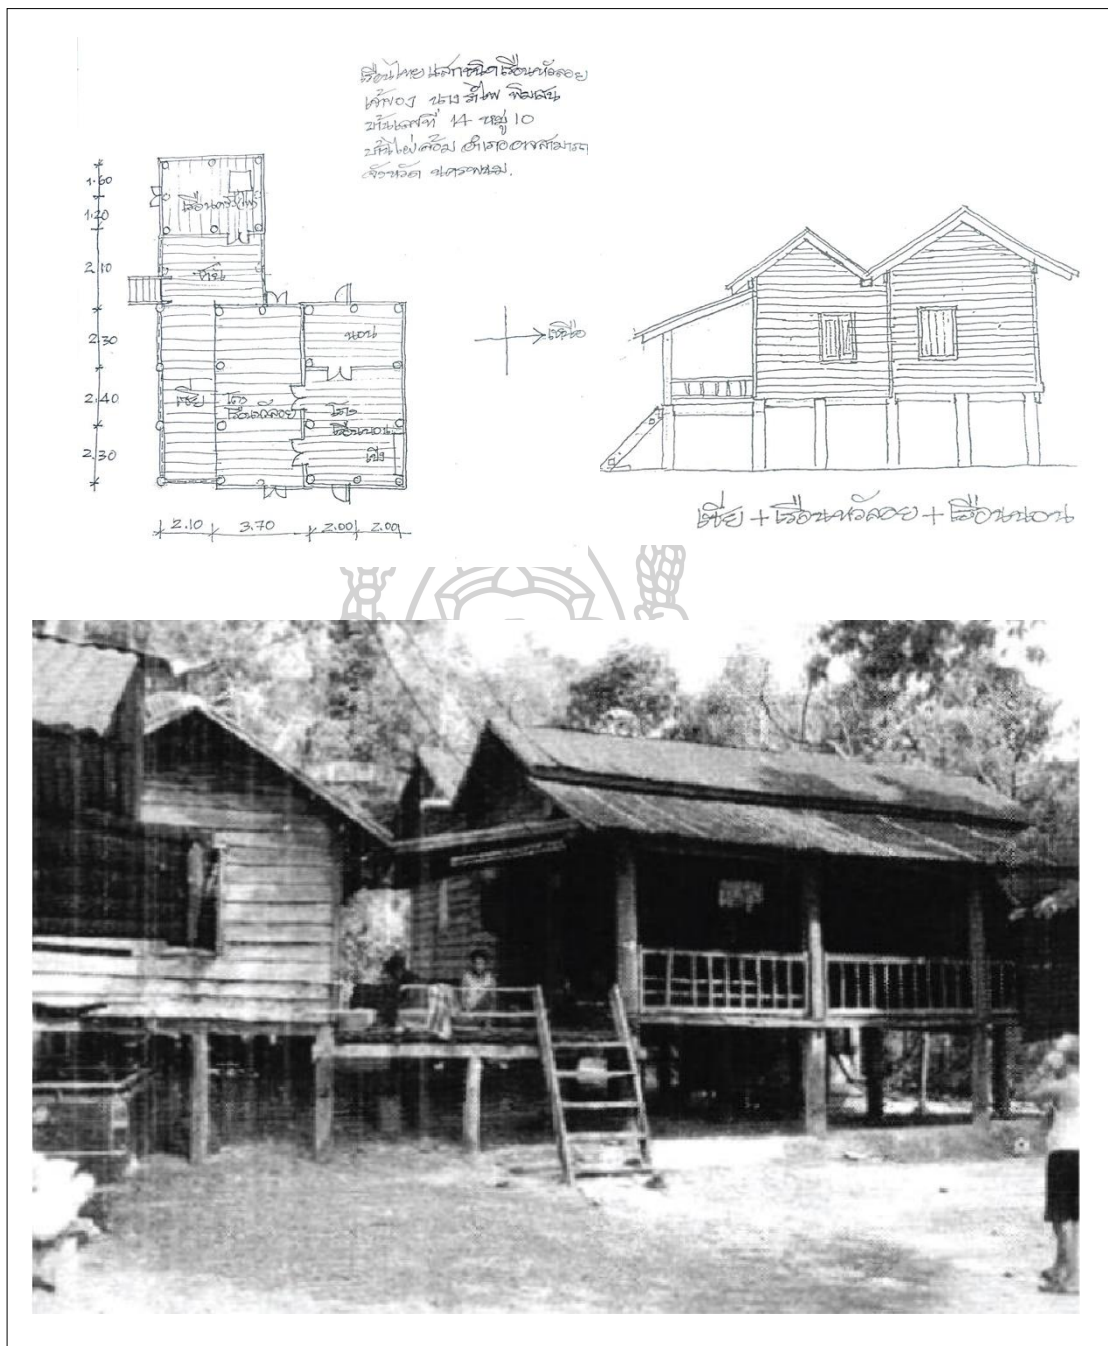 เรือนไทยแสกชนิดเรือนหัวลอย
เจ้าของ นาง พิมเสน
บ้านเลขที่ 14 หมู่ 10
บ้านไผ่ล้อม อำเภออาจสามารถ
จังหวัด นครพนม.
1.60
1.20
2.10
2.30
2.40
2.30
เรือนครัวไฟ
ชาน
นอน
เซีย
โถง
เรือนหัวลอย
โถง
เรือนนอน
เปิง
2.10 3.70 2.00 2.00
เหนือ
เซีย + เรือนหัวลอย + เรือนนอน